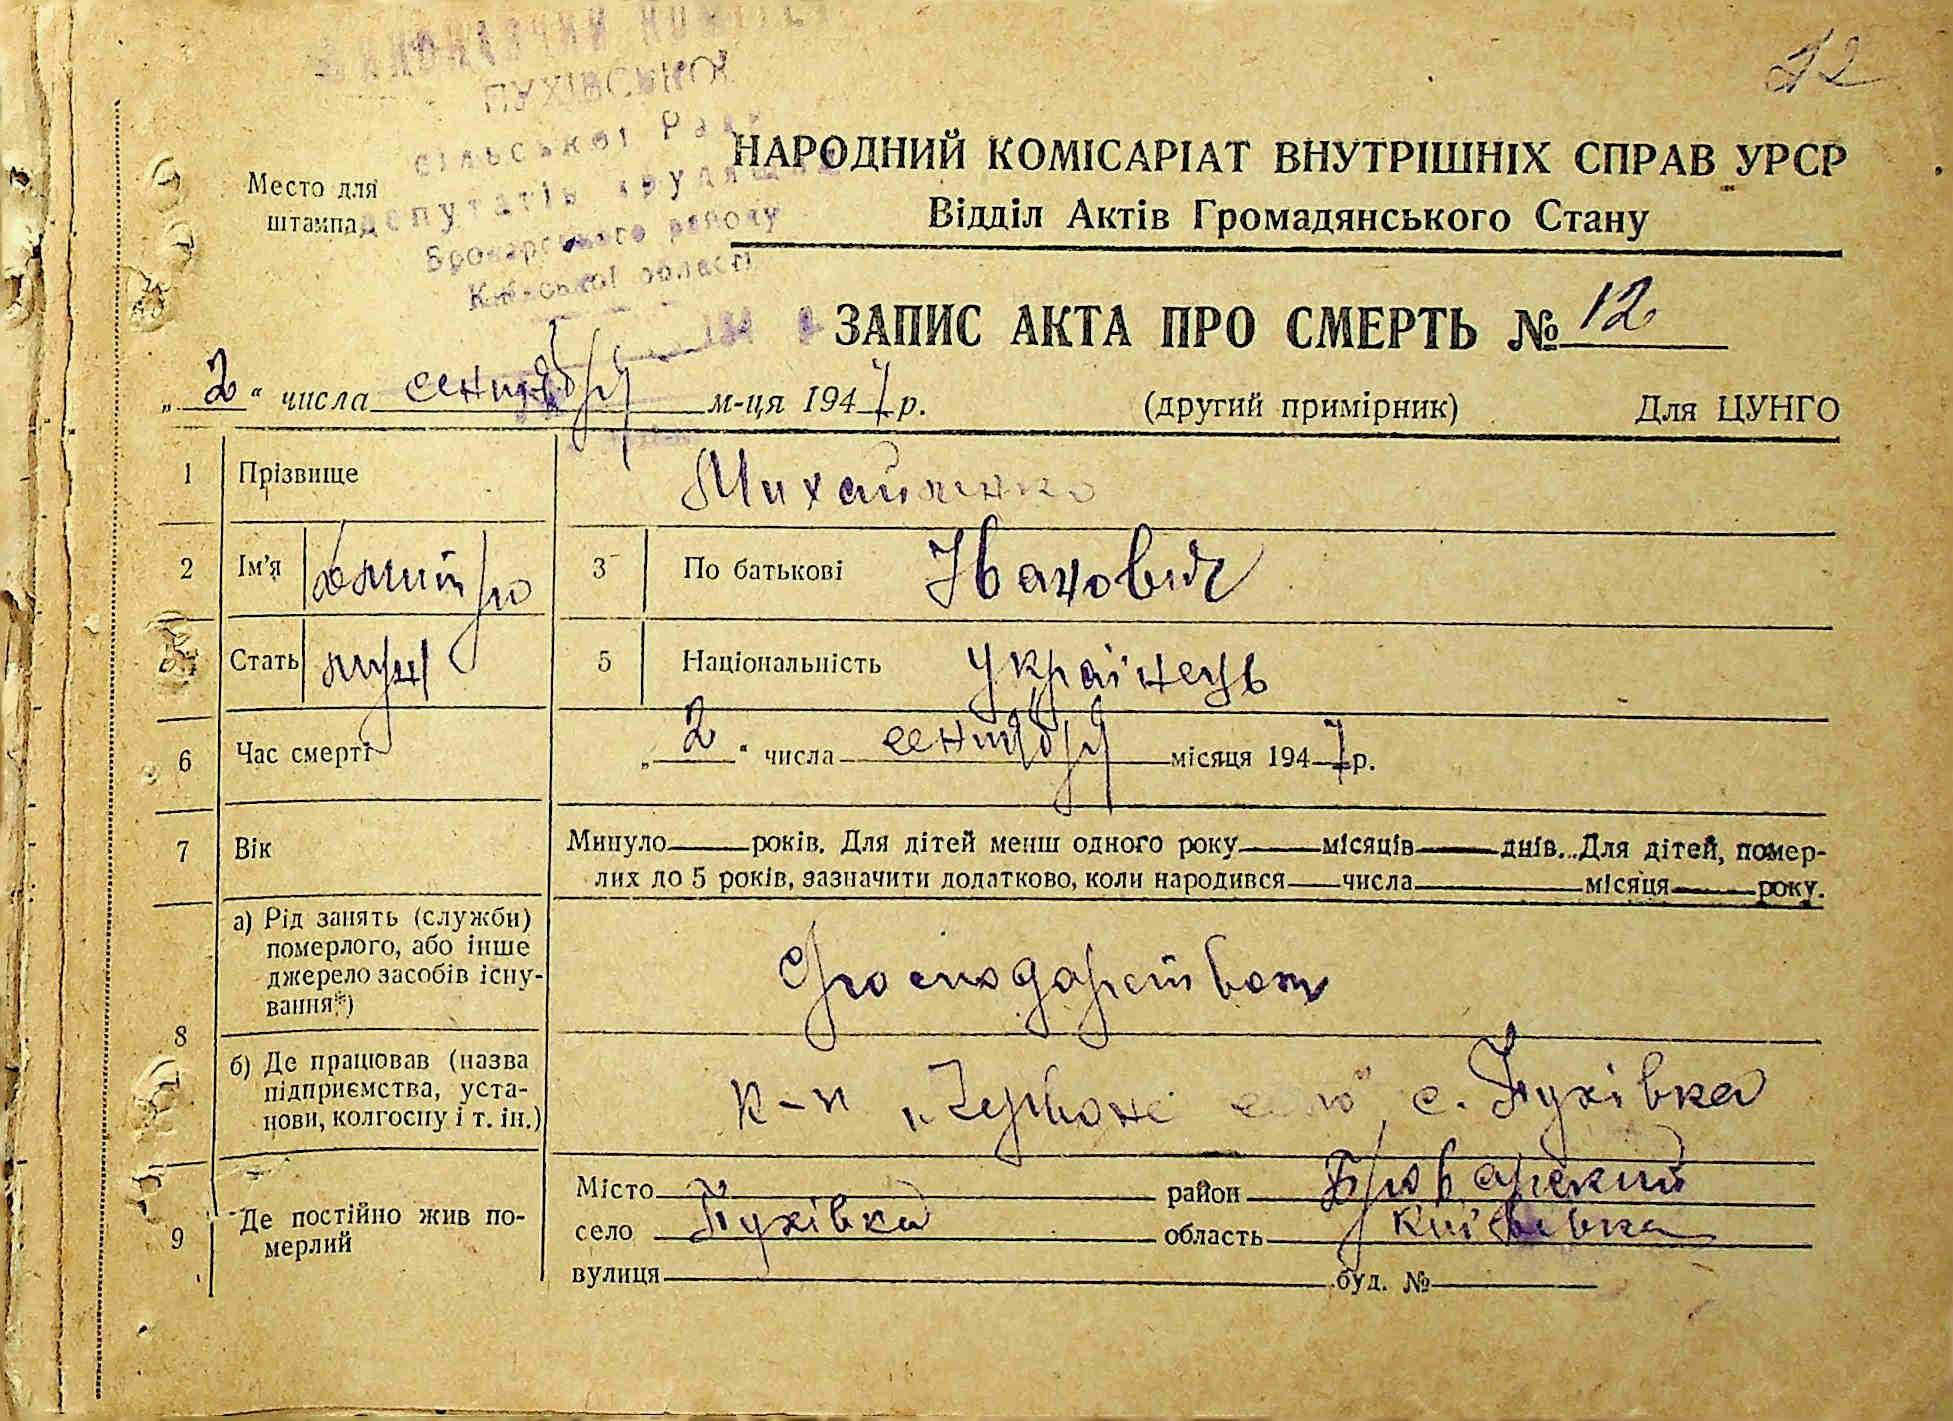 12
ВИКОНАВЧИЙ КОМІТЕТ
ПУХІВСЬКОЇ
сільської Ради
депутатів трудящих
Броварського району
Київської області
194 р.
Место для
штампа
НАРОДНИЙ КОМІСАРІАТ ВНУТРІШНІХ СПРАВ УРСР
Відділ Актів Громадянського Стану
ЗАПИС АКТА ПРО СМЕРТЬ № 12
„ 2 “ числа сентября м-ця 1947 р. (другий примірник) Для ЦУНГО
1 Прізвище Михайленко
2 Ім’я Дмитро 3 По батькові Іванович
Стать муж 5 Національність українець
6 Час смерті „ 2 “ числа сентября місяця 1947 р.
7 Вік Минуло років. Для дітей менш одного року місяців днів. Для дітей, помер-
лих до 5 років, зазначити додатково, коли народився числа місяця року.
8 а) Рід занять (служби)
померлого, або інше
джерело засобів існу-
вання*)
Господарством
б) Де працював (назва
підприємства, уста-
нови, колгоспу і т. ін.)
к-п „Червоне село” с. Пухівка
9 Де постійно жив по-
мерлий
Місто район Броварский
село Пухівка область Київська
вулиця буд. №